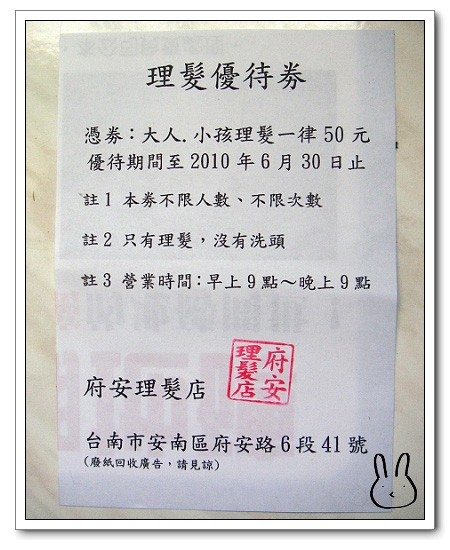 理髮優待券
憑券：大人.小孩理髮一律50元
優待期間至2010年6月30日止
註1 本券不限人數、不限次數
註2 只有理髮，沒有洗頭
註3 營業時間：早上9點～晚上9點
府安
理髮店
府安理髮店
台南市安南區府安路6段41號
(廢紙回收廣告，請見諒)